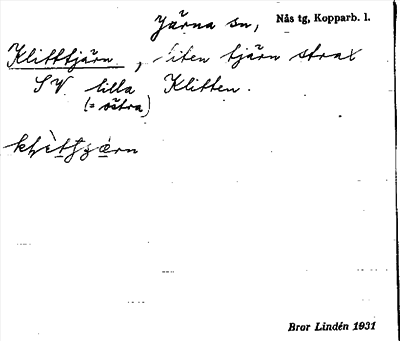 Järna sn, Nås tg, Kopparb. l.
Klitttjärn, liten tjärn strax
SV lilla Klitten.
(= östra)
Bror Lindén 1931